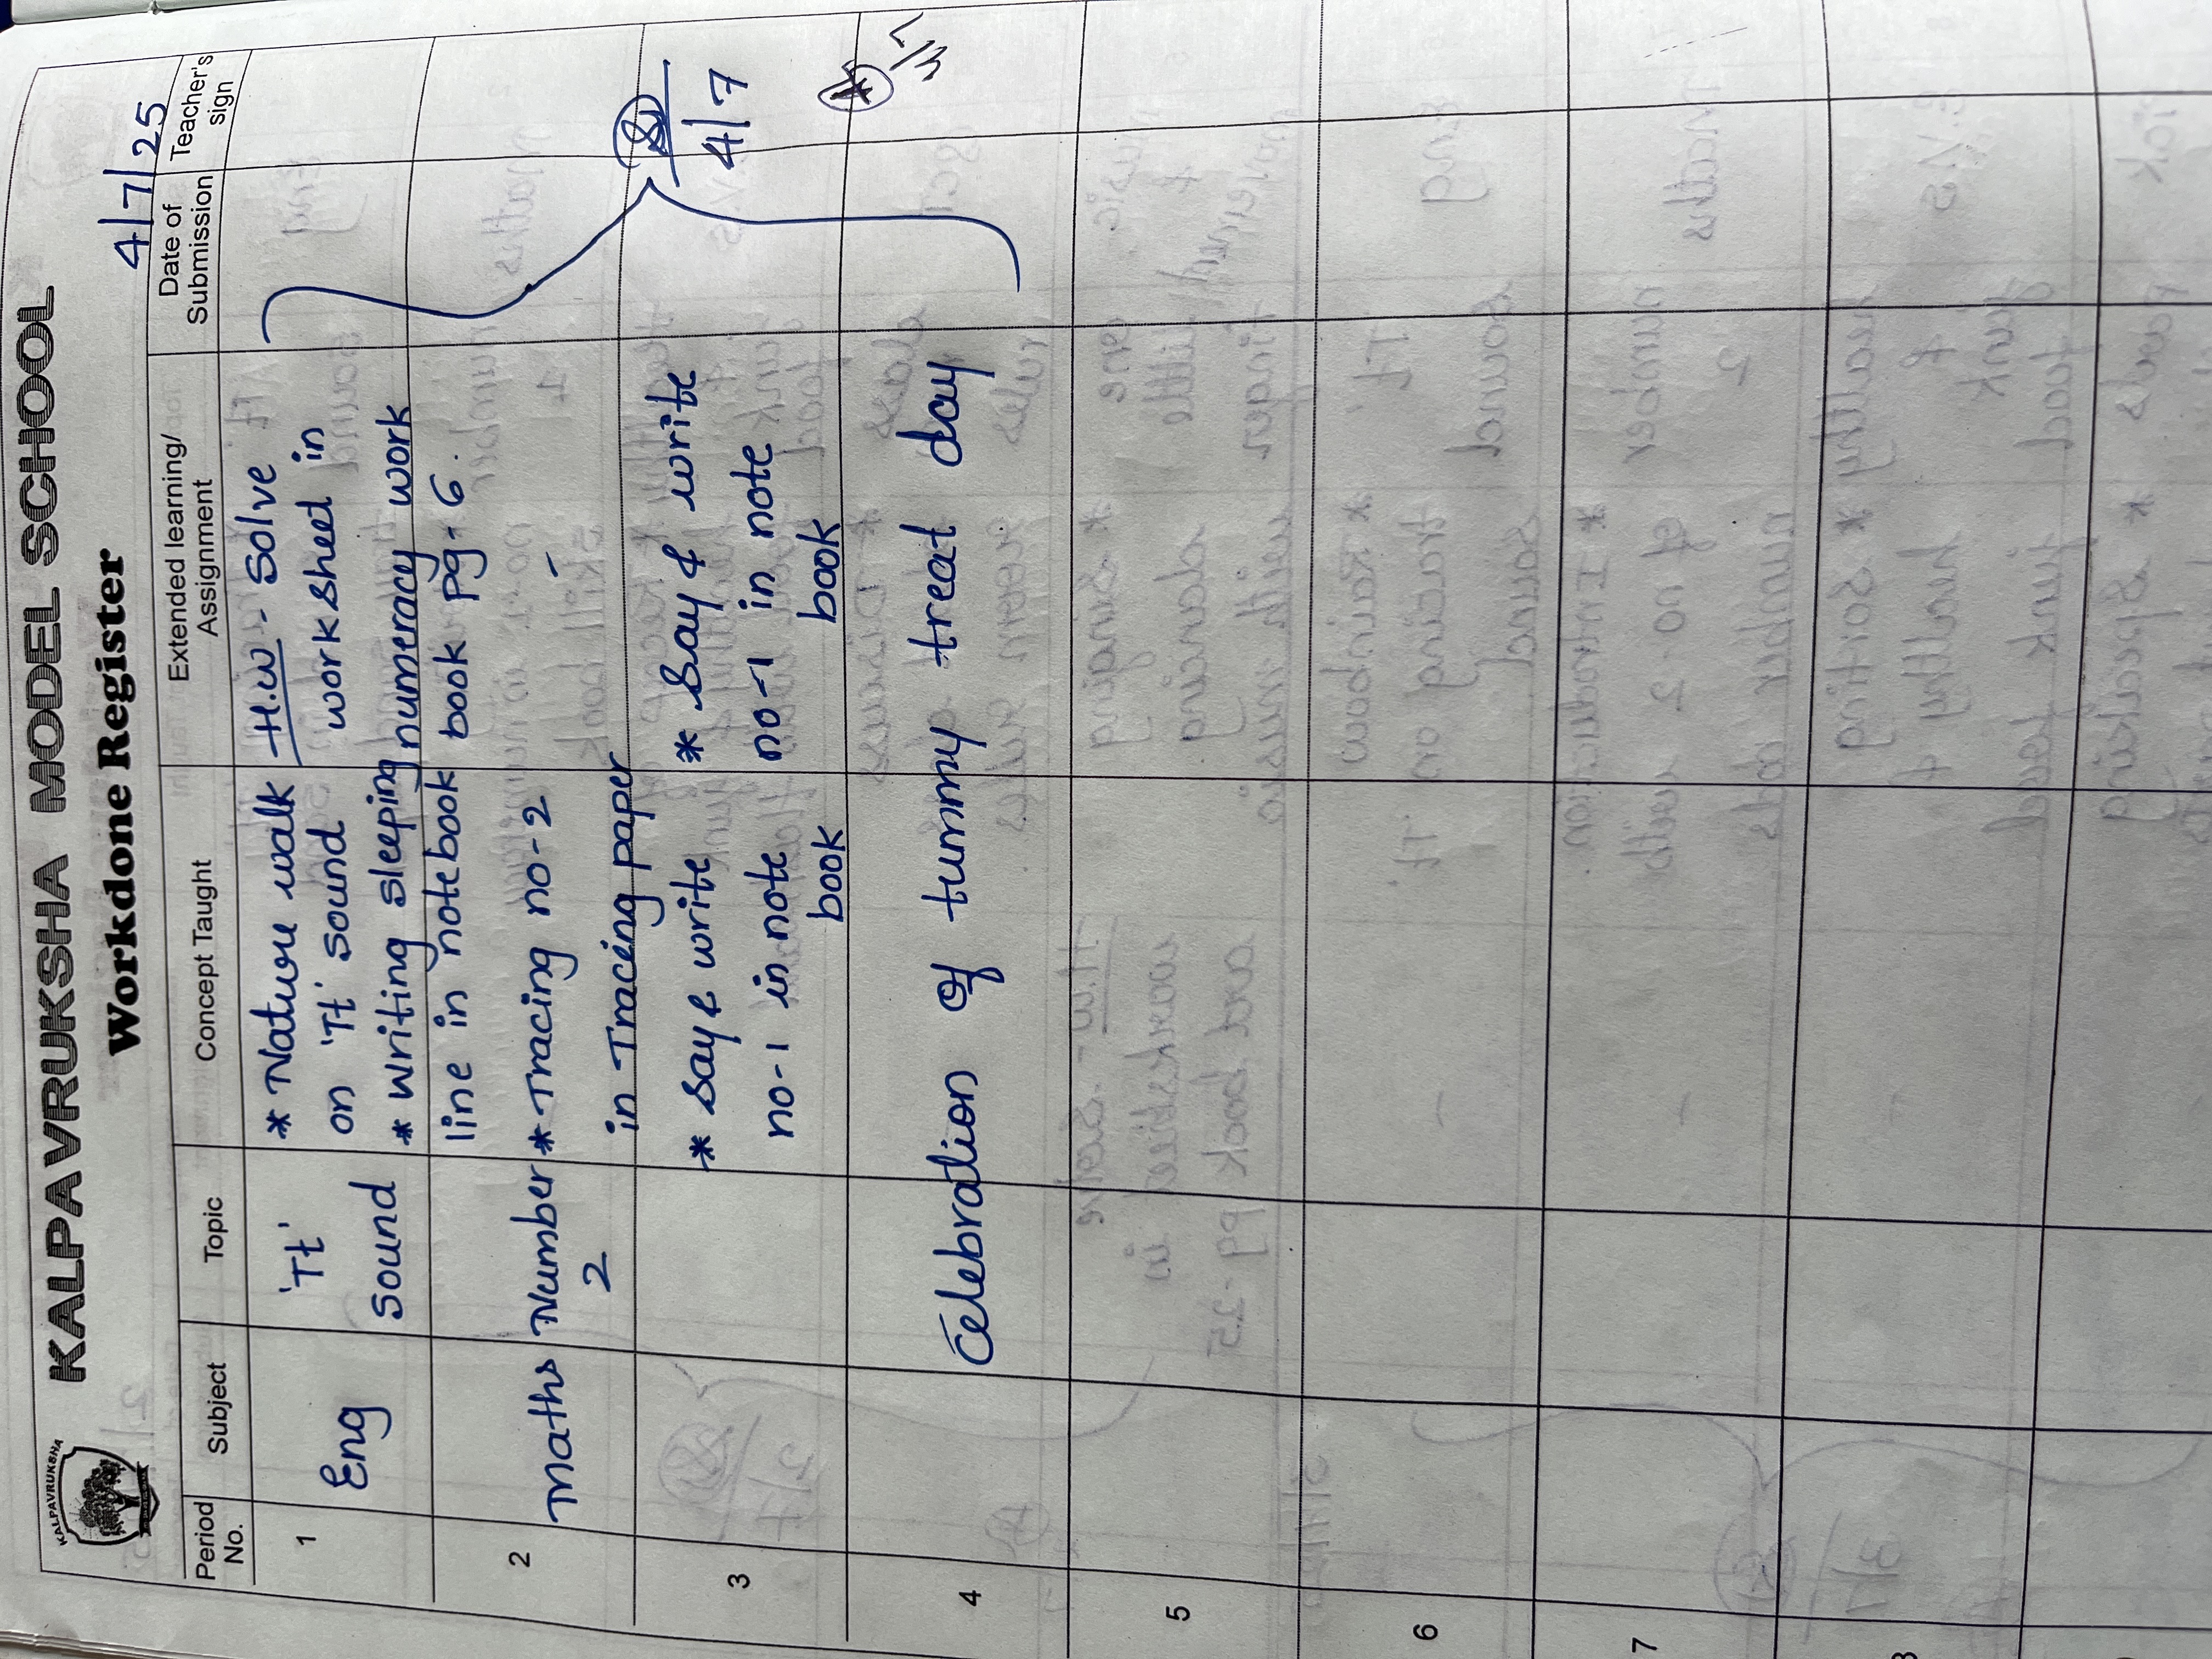 KALPAVRUKSHA
KALPAVRUKSHA MODEL SCHOOL
Workdone Register
4/7/25
Period No.
Subject
Topic
Concept Taught
Extended learning/ Assignment
Date of Submission
Teacher's sign
1
Eng
'Tt'
sound
* Nature walk
on 'Tt' sound
* Writing sleeping
line in notebook
H.W - Solve
worksheet in
numeracy work
book pg - 6.
2
maths
Number
2
* Tracing no-2
in Tracing paper
-
3
* Say & write
no-1 in note
book
* Say & write
no-1 in note
book
4/7
4
Celebration of tummy treat day
5
6
7
8